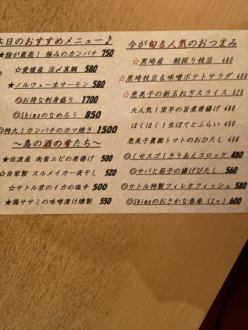 本日のおすすめメニュー♪
★脂が最高! 極みのカンパチ 750
☆愛媛産 活〆真鯛 580
★ノルウェー生サーモン 580
◎お得な刺身盛り 1700
◎Shimeのなめろう 850
◎特大!カンパチのカマ焼き 1500
～島の酒の肴たち～
★佐渡産 南蛮エビの唐揚げ 500
☆自家製 スルメイカ一夜干し 520
☆サトル君のイカの塩辛 500
★鶏ササミの味噌漬け燻製 550
今が旬&人気のおつまみ
☆黒崎産 朝採り枝豆 480
☆黒崎枝豆&味噌ポテトサラダ 480
☆恵美子の新玉ねぎスライス
大人気!里芋の旨煮唐揚げ 480
ほくほく!生ぽてとふらい
恵美子農園トマトのおひたし
◎くせスゴ!きりあえコロッケ 480
◎サバと茄子の揚げびたし 560
◎サトル特製フィレオフィッシュ 580
◎Shimeのおさかな春巻 (2ヶ) 600